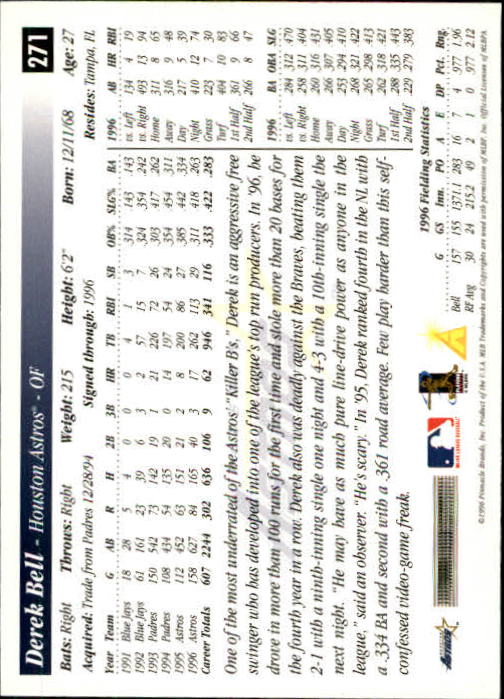 Derek Bell - Houston Astros® - OF
271
Bats: Right Throws: Right Weight: 215 Height: 6'2" Born: 12/11/68 Age: 27
Acquired: Trade from Padres 12/28/94 Signed through: 1996 Resides: Tampa, FL
Year Team G AB R H 2B 3B HR TB RBI SB OB% SLG% BA
1991 Blue Jays 18 28 5 4 0 0 0 4 1 3 .314 .143 .143
1992 Blue Jays 61 161 23 39 6 3 2 57 15 7 .324 .354 .242
1993 Padres 150 542 73 142 19 1 21 226 72 26 .303 .417 .262
1994 Padres 108 434 54 135 20 0 14 197 54 24 .354 .454 .311
1995 Astros 112 452 63 151 21 2 8 200 86 27 .385 .442 .334
1996 Astros 158 627 84 165 40 3 17 262 113 29 .311 .418 .263
Career Totals 607 2244 302 636 106 9 62 946 341 116 .333 .422 .283
1996 AB HR RBI
vs. Left 134 4 19
vs. Right 493 13 94
Home 311 8 65
Away 316 9 48
Day 217 5 39
Night 410 12 74
Grass 223 7 30
Turf 404 10 83
1st Half 361 9 66
2nd Half 266 8 47
1996 BA OBA SLG
vs. Left .284 .312 .470
vs. Right .258 .311 .404
Home .260 .316 .431
Away .266 .307 .405
Day .253 .294 .410
Night .268 .321 .422
Grass .265 .298 .413
Turf .262 .318 .421
1st Half .288 .335 .443
2nd Half .229 .279 .383
One of the most underrated of the Astros' "Killer B's," Derek is an aggressive free
swinger who has developed into one of the league's top run producers. In '96, he
drove in more than 100 runs for the first time and stole more than 20 bases for
the fourth year in a row. Derek also was deadly against the Braves, beating them
2-1 with a ninth-inning single one night and 4-3 with a 10th-inning single the
next night. "He may have as much pure line-drive power as anyone in the
league," said an observer. "He's scary." In '95, Derek ranked fourth in the NL with
a .334 BA and second with a .361 road average. Few play harder than this self-
confessed video-game freak.
1996 Fielding Statistics
G GS Inn. PO A E DP Pct. Rng.
Bell 157 155 1371.1 283 16 7 4 .977 1.96
RF Avg 30 24 215.2 49 2 1 0 .977 2.12
Astros
©1996 Pinnacle Brands, Inc. Product of the U.S.A. MLB Trademarks and Copyrights are used with permission of MLBP, Inc. Official Licensee of MLBPA.